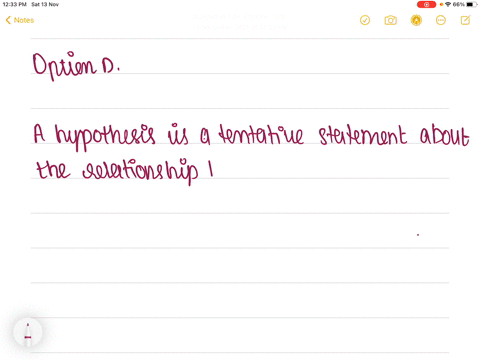 12:33 PM Sat 13 Nov
66%
Notes
Option D.
A hypothesis is a tentative statement about
the relationship